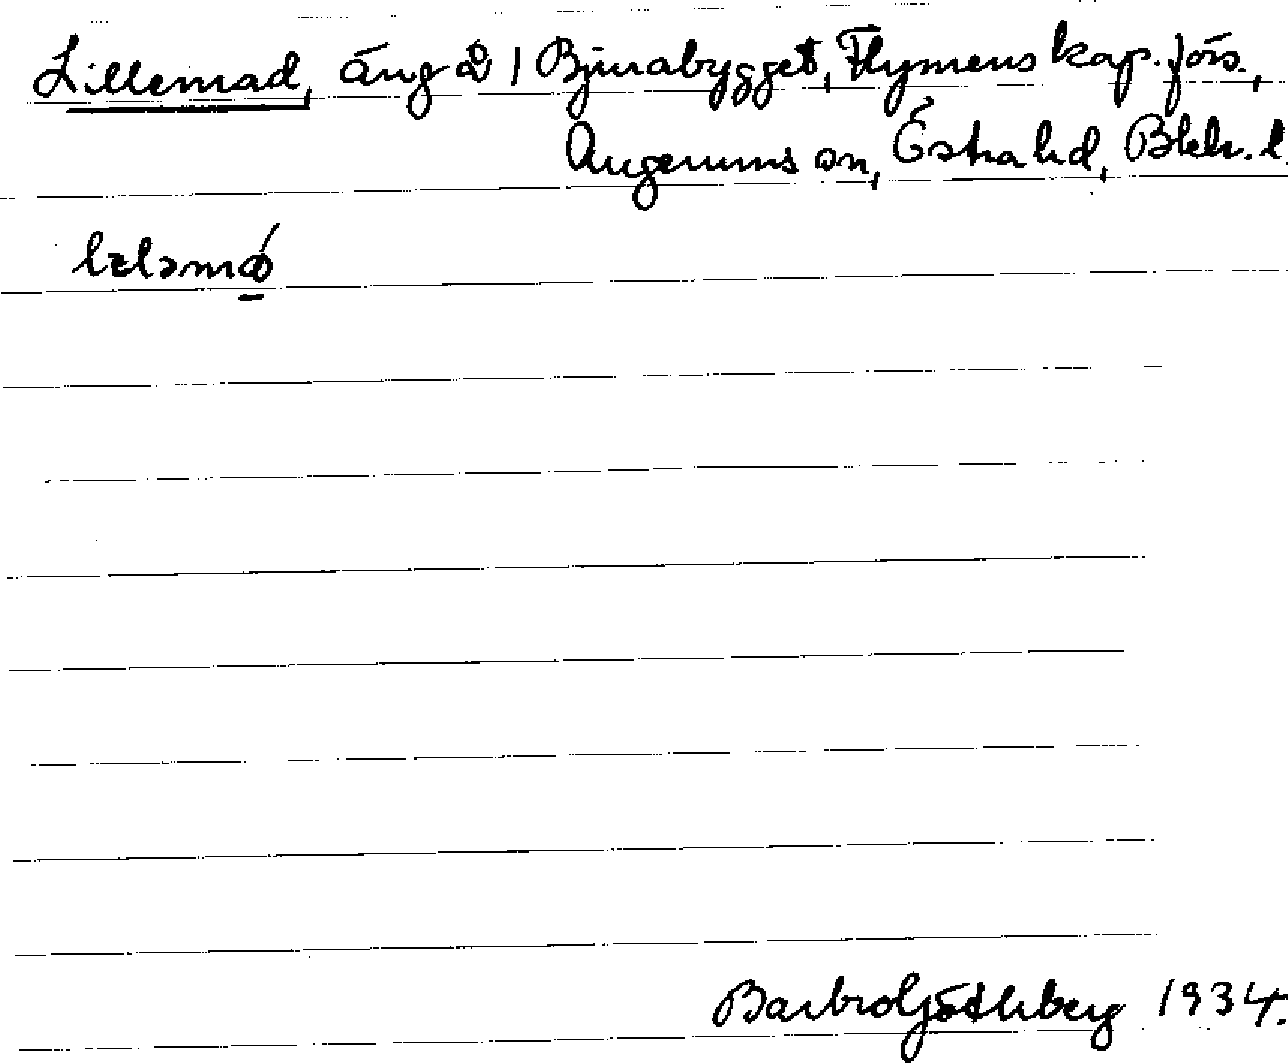 Lillemad, äng å 1 Bjurabygget, Flymens kap. förs.,
Augerums sn, Östra hd, Blek. l.
Barbro Göthberg 1934.